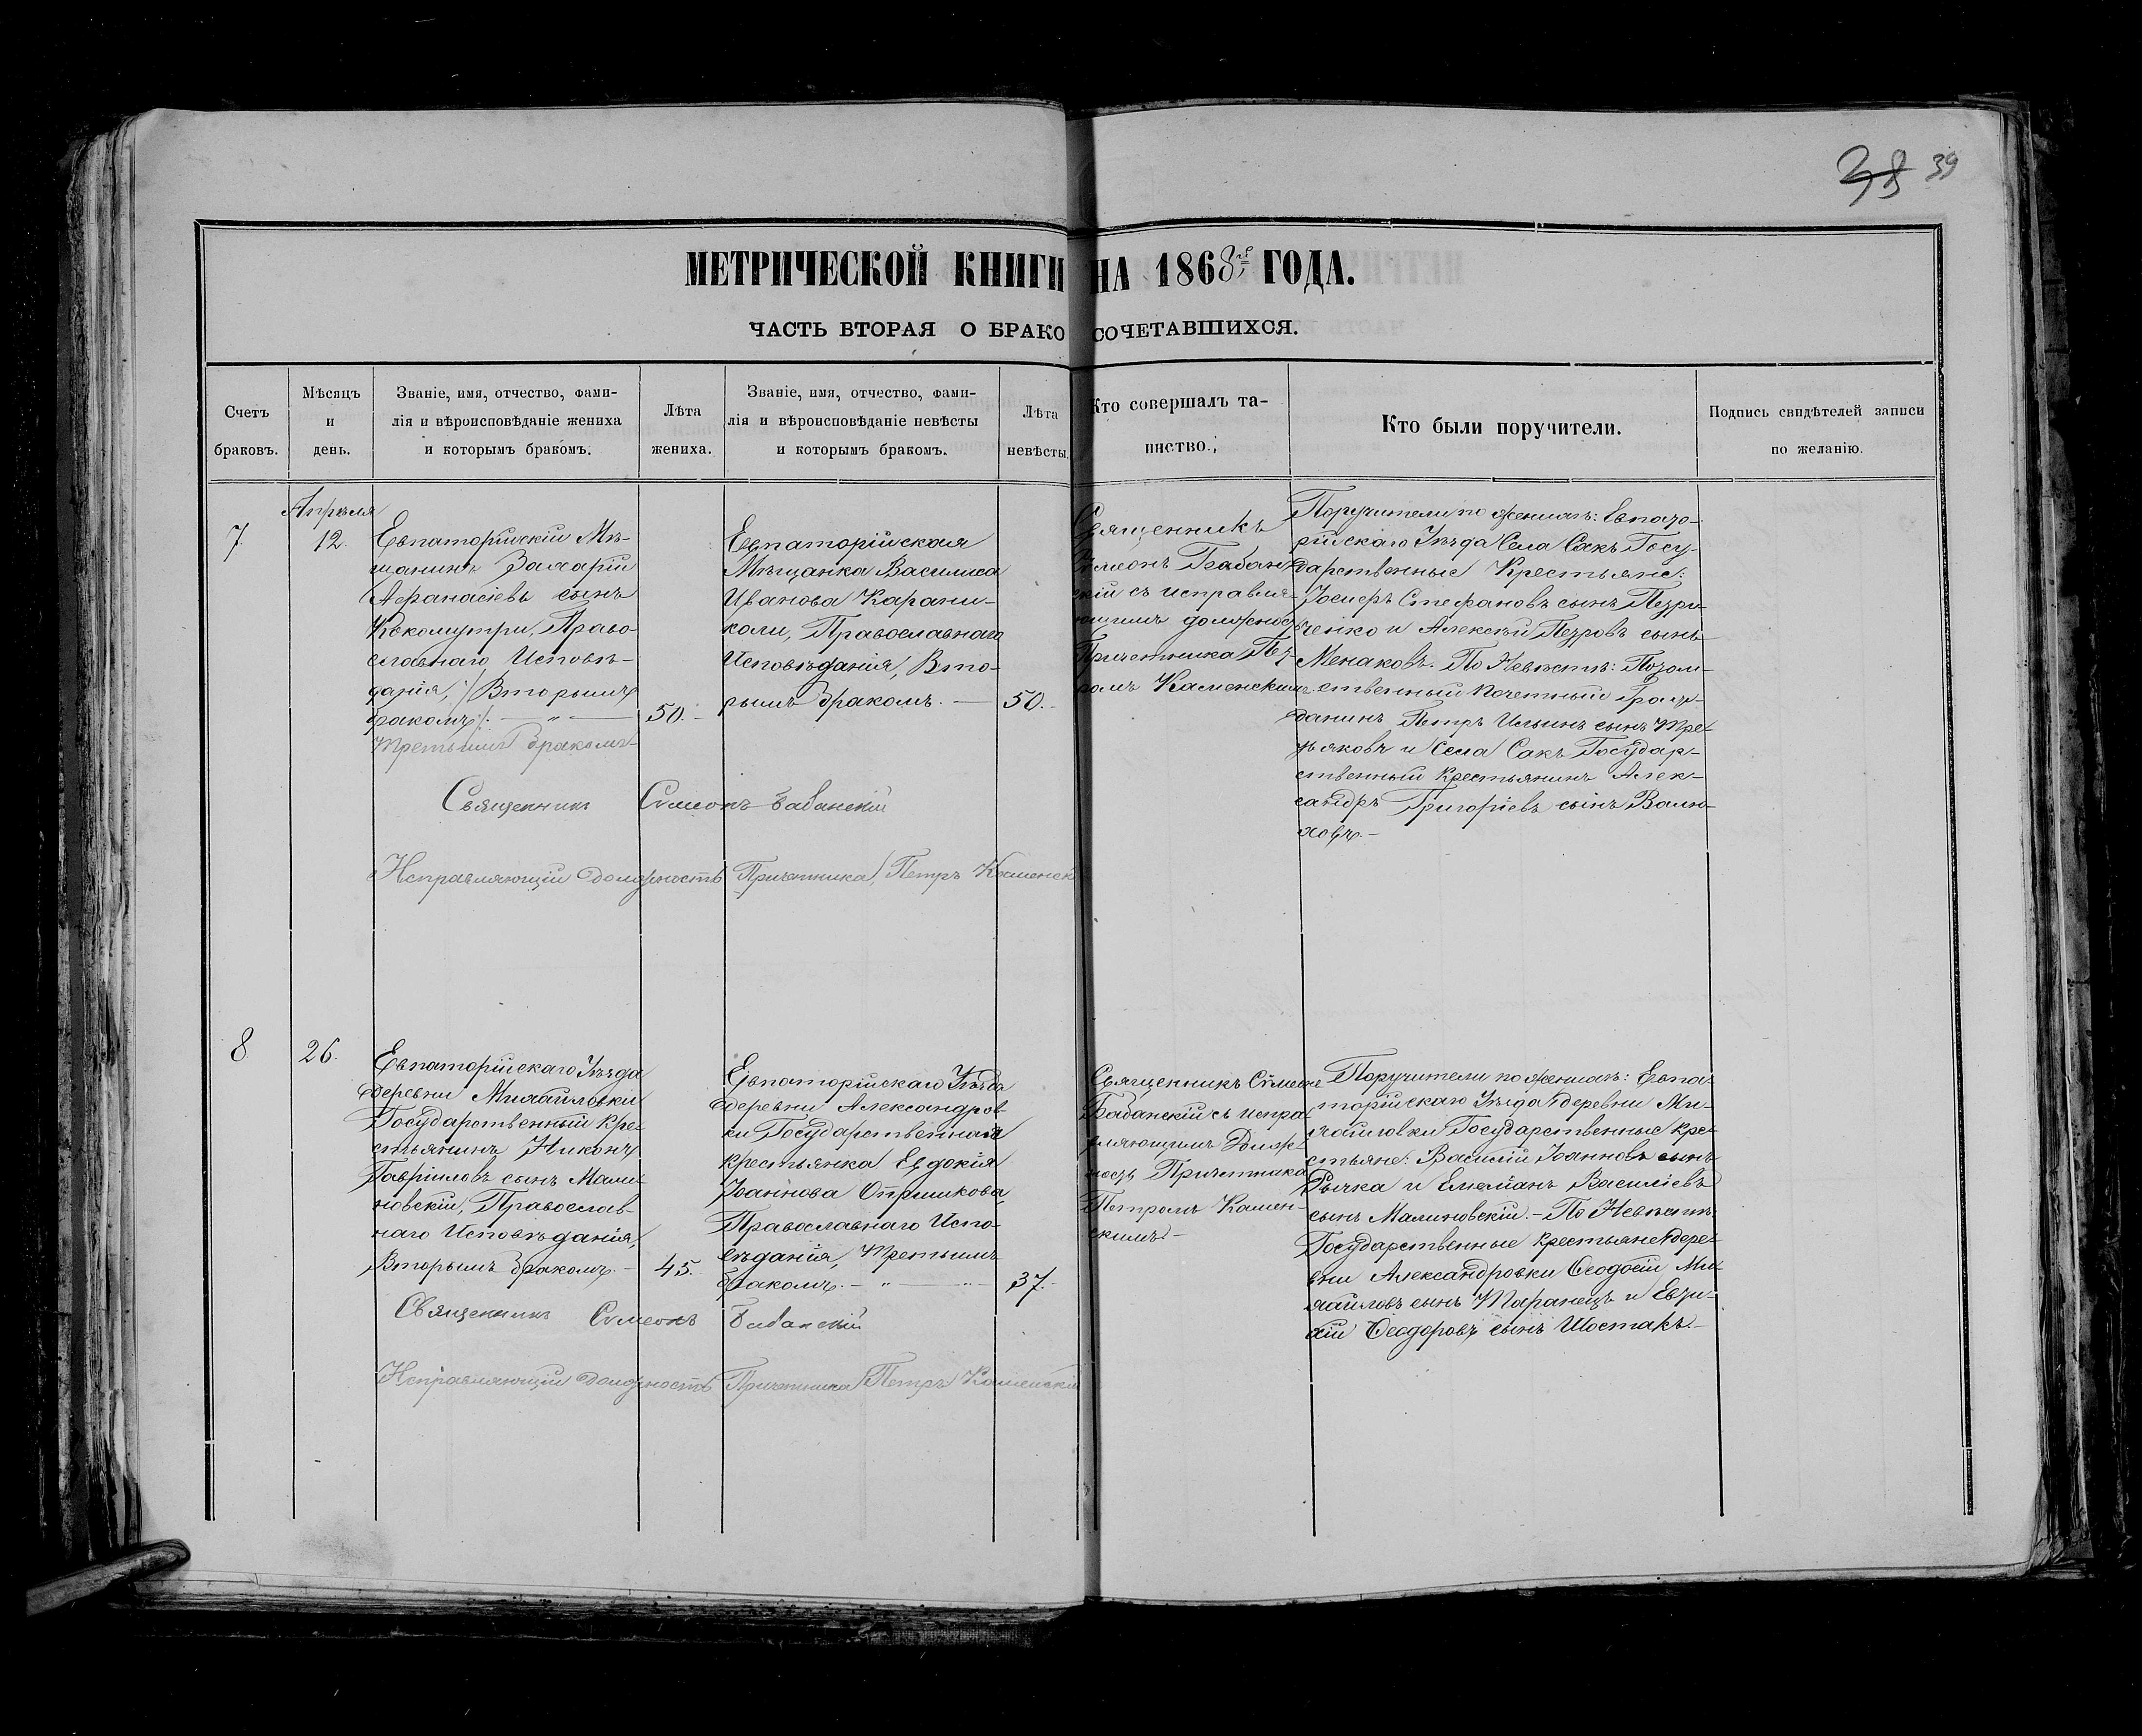 38 39
МЕТРИЧЕСКОЙ КНИГИ НА 1868го ГОДА.
ЧАСТЬ ВТОРАЯ О БРАКОСОЧЕТАВШИХСЯ.
Счетъ
браковъ.
Мѣсяцъ
и
день.
Званіе, имя, отчество, фами-
лія и вѣроисповѣданіе жениха
и которымъ бракомъ.
Лѣта
жениха.
Званіе, имя, отчество, фами-
лія и вѣроисповѣданіе невѣсты
и которымъ бракомъ.
Лѣта
невѣсты.
Кто совершалъ та-
инство.
Кто были поручители.
Подпись свидѣтелей записи
по желанію.
7.
Апрѣля
12.
Евпаторійскій Мѣ-
щанинъ Захарій
Афанасіевъ сынъ
Право-
славнаго Исповѣ-
данія, /Вторымъ
бракомъ/. — „ —
Третьимъ бракомъ
50.
Евпаторійская
Мѣщанка Василиса
Иванова Карани-
коли, Православнаго
Исповѣданія, Вто-
рымъ бракомъ. —
50.
Священникъ
Сѵмеонъ Бабан-
скій съ исправля-
ющимъ должность
Причетника Пет-
ромъ Каменскимъ
Поручители по женихѣ: Евпато-
рійскаго Уѣзда Села Сакъ Госу-
дарственные Крестьяне:
Іосифъ Стефановъ сынъ Петри-
ченко и Алексѣй Петровъ сынъ
Менаковъ. По Невѣстѣ: Потом-
ственный почетный Граж-
данинъ Петръ Ильинъ сынъ Тре-
тьяковъ и Села Сакъ Государ-
ственный Крестьянинъ Алек-
сандръ Григоріевъ сынъ Валю-
ховъ. —
Священникъ Сѵмеонъ Бабанскій
Исправляющій должность Причетника Петръ Каменск
8.
26.
Евпаторійскаго Уѣзда
деревни Михайловки
Государственный Кре-
стьянинъ Никонъ
Гавріиловъ сынъ Мали-
новскій, Православ-
наго Исповѣданія,
Вторымъ бракомъ. —
45.
Евпаторійскаго Уѣзда
деревни Александров-
ки Государственная
крестьянка Евдокія
Іоаннова Опришкова,
Православнаго Испо-
вѣданія, Третьимъ
бракомъ. — „ —
37.
Священникъ Сѵмеонъ
Бабанскій съ испра-
вляющимъ Долж-
ность Причетника
Петромъ Камен-
скимъ —
Поручители по женихѣ: Евпа-
торійскаго Уѣзда деревни Ми-
хайловки Государственные кре-
стьяне: Василій Іоанновъ сынъ
Рычка и Емеліанъ Василіевъ
сынъ Малиновскій. — По Невѣстѣ
Государственные Крестьяне дере-
вни Александровки Ѳеодосій Ми-
хайловъ сынъ Таранецъ и Евти-
хій Ѳеодоровъ сынъ Шостакъ. —
Священникъ Сѵмеонъ Бабанскій
Исправляющій должность Причетника Петръ Каменскій